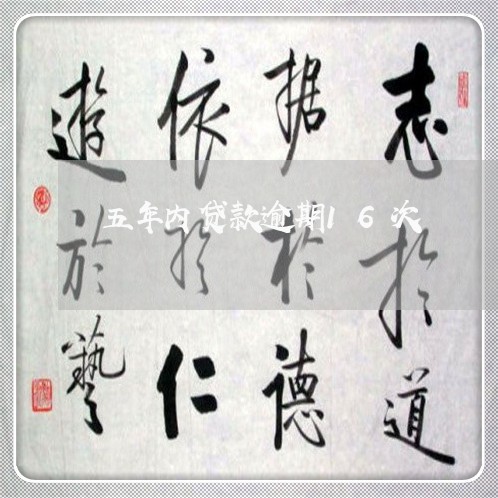 五年内贷款逾期16次
志於道
据於德
依於仁
遊於藝